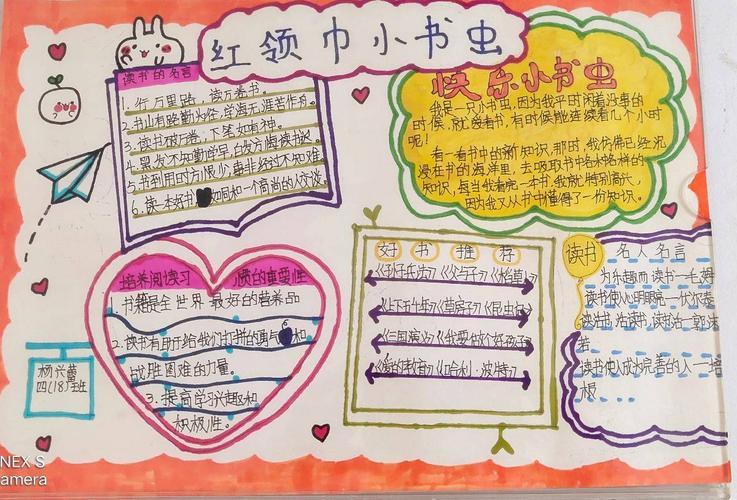 红领巾小书虫
读书的名言
1. 行万里路，读万卷书。
2. 书山有路勤为径，学海无涯苦作舟。
3. 读书破万卷，下笔如有神。
4. 黑发不知勤学早，白首方悔读书迟。
5. 书到用时方恨少，事非经过不知难
6. 读一本好书 如同和一个高尚的人交谈。
快乐小书虫
我是一只小书虫，因为我平时闲着没事的
时候，就爱看书，有时候能连续看几个小时
呢！
看一看书中的新知识，那时，我仿佛已经沉
浸在书的海洋里，去吸取书中各水各样的
知识，每当我看完一本书，我就特别高兴，
因为我又从书中懂得了一份知识。
培养阅读习惯的重要性
1. 书籍是全世界最好的营养品
2. 读书有助于给我们打拼的勇气 和
战胜困难的力量。
3. 提高学习兴趣和
积极性。
好书推荐
《孙子兵法》《父与子》《水浒
《上下五千年》《草房子》《昆虫
《三国演义》《我要做个好孩子
《爱的教育》《哈利·波特》
读书 名人名言
为乐趣而读书—毛姆
读书使人心明眼亮—伏尔泰
读书
读书使人成为完善的人—培
根....
杨兴蕾
四(18)班
NEX S
amera